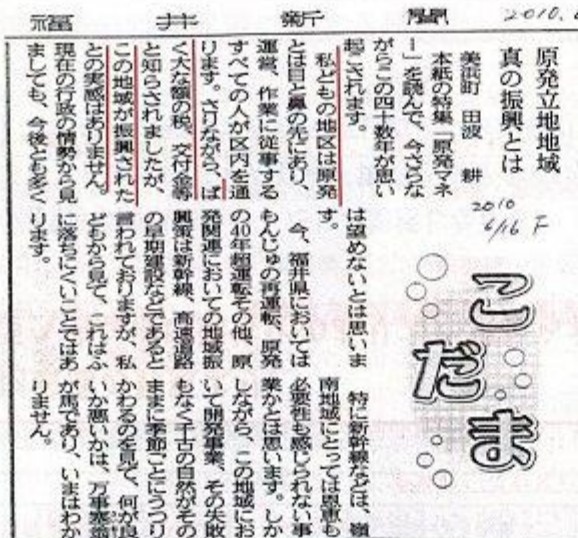 福井新聞
2010.
原発立地地域
真の振興とは
美浜町 田波 耕
本紙の特集「原発マネ
ー」を読んで、今さらな
がらこの四十数年が思い
起こされます。
私どもの地区は原発
とは目と鼻の先にあり、
運営、作業に従事する
すべての人が区内を通
ります。さりながら、ば
く大な額の税、交付金等
と知らされましたが、
この地域が振興された
との実感はありません。
現在の行政の情勢から見
ましても、今後とも多く
は望めないとは思いま
す。
今、福井県においては
もんじゅの再運転、原発
の40年超運転その他、原
発関連においての地域振
興策は新幹線、高速道路
の早期建設などであると
言われておりますが、私
どもから見て、これはふ
に落ちにくいことではあ
ります。
2010
6/16 F
こだま
特に新幹線などは、嶺
南地域にとっては恩恵も
必要性も感じられない事
業かとは思います。しか
しながら、この地域にお
いて開発事業、その失敗
もなく千古の自然がその
ままに季節ごとにうつり
かわるのを見て、何が良
いか悪いかは、万事塞翁
が馬であり、いまはわか
りません。